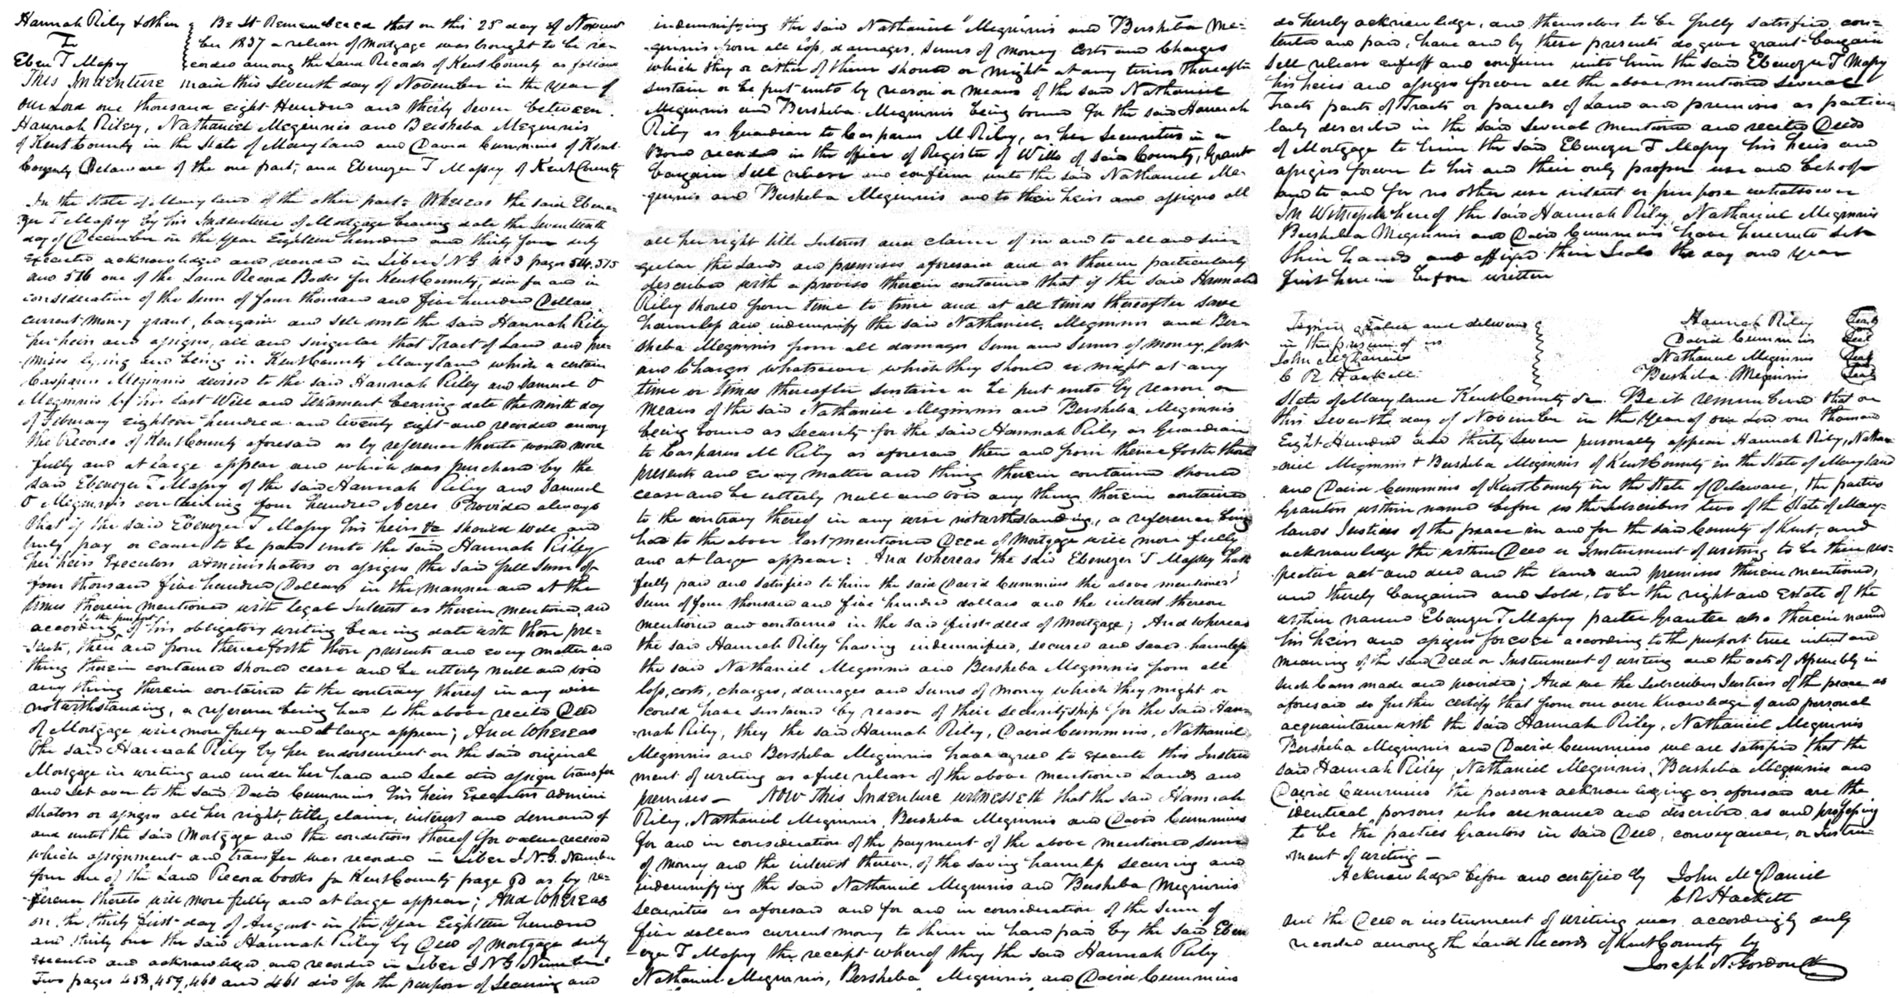 Hannah Riley & others
To
Eben T Massy
Be It Remembered that on this 25 day of Novem
ber 1837 a release of Mortgage was brought to be re=
corded among the Land Records of Kent County as follows
This Indenture made this Seventh day of November in the year of
Our Lord one thousand eight Hundred and thirty seven between
Hannah Riley, Nathaniel Meginnis and Bersheba Meginnis
of Kent County in the State of Maryland and David Cummins of Kent
County Delaware of the one part, and Ebenezer T Massy of Kent County
In the State of Maryland of the other part. Whereas the said Ebene=
zer T Massy by his Indenture of Mortgage bearing date the Seventeenth
day of December in the Year Eighteen hundred and thirty four duly
executed acknowledged and recorded in Liber J.N.G. No 3 pages 514, 515
and 516 one of the Land Record Books for Kent County, did for and in
consideration of the sum of four thousand and five hundred Dollars
current money grant, bargain and sell unto the said Hannah Riley
her heirs and assigns, all and singular that Tract of Land and pre=
mises lying and being in Kent County Maryland which a certain
Casparus Meginnis devised to the said Hannah Riley and Samuel O
Meginnis by his last Will and Testament bearing date the ninth day
of February eighteen hundred and twenty eight and recorded among
the records of Kent County aforesaid as by reference thereto would more
fully and at large appear and which was purchased by the
said Ebenezer T Massy of the said Hannah Riley and Samuel
O Meginnis containing four hundred Acres Provided always
that if the said Ebenezer T Massy his heirs &c should well and
truly pay or cause to be paid unto the said Hannah Riley
her heirs Executors administrators or assigns the said full sum of
four thousand five hundred Dollars in the manner and at the
times therein mentioned with legal Interest as therein mentioned and
according to the purport of his obligatory writing bearing date with those pre=
sents, then and from thenceforth those presents and every matter and
thing therein contained should cease and be utterly null and void
any thing therein contained to the contrary thereof in any wise
notwithstanding, a reference being had to the above recited Deed
of Mortgage will more fully and at large appear; And Whereas
the said Hannah Riley by her endorsement on the said original
Mortgage in writing and under her hand and seal did assign transfer
and set over to the said David Cummins his heirs Executors admini
strators or assigns all her right, title, claim, interest and demand of
and unto the said Mortgage and the conditions thereof for value received
which assignment and transfer was recorded in Liber J.N.G. Number
four one of the Land Record books for Kent County page 60 as by re=
ference thereto will more fully and at large appear; And Whereas
on the thirty first day of August in the Year Eighteen hundred
and thirty one the said Hannah Riley by Deed of Mortgage duly
executed and acknowledged and recorded in Liber J N G Number
Two pages 458, 459, 460 and 461 did for the purpose of securing and
indemnifying the said Nathaniel Meginnis and Bersheba Me=
ginnis from all loss, damages, sums of money costs and charges
which they or either of them should or might at any times thereafter
sustain or be put unto by reason or means of the said Nathaniel
Meginnis and Bersheba Meginnis being bound for the said Hannah
Riley as Guardian to Casparus M Riley, as her Securities in a
Bond recorded in the office of Register of Wills of said County, Grant
bargain sell release and confirm unto the said Nathaniel Me=
ginnis and Bersheba Meginnis and to their heirs and assigns all
all her right title Interest and claim of in and to all and sin=
gular the Lands and premises aforesaid and as therein particularly
described with a proviso therein contained that if the said Hannah
Riley should from time to time and at all times thereafter save
harmless and indemnify the said Nathaniel Meginnis and Ber=
sheba Meginnis from all damages sum and sums of money, costs
and Charges whatsoever which they should or might at any
time or times thereafter sustain or be put unto by reason or
means of the said Nathaniel Meginnis and Bersheba Meginnis
being bound as Security for the said Hannah Riley as Guardian
to Casparus M Riley as aforesaid then and from thence forth those
presents and every matter and thing therein contained should
cease and be utterly null and void any thing therein contained
to the contrary thereof in any wise notwithstanding, a reference being
had to the above last mentioned Deed of Mortgage will more fully
and at large appear: And whereas the said Ebenezer T Massy hath
fully paid and satisfied to him the said David Cummins the above mentioned
sum of four thousand and five hundred dollars and the interest thereon
mentioned and contained in the said first deed of Mortgage; And whereas
the said Hannah Riley having indemnified, secured and saved harmless
the said Nathaniel Meginnis and Bersheba Meginnis from all
loss, costs, charges, damages and sums of money which they might or
could have sustained by reason of their securityship for the said Han=
nah Riley, they the said Hannah Riley, David Cummins, Nathaniel
Meginnis and Bersheba Meginnis have agreed to execute this Instru
ment of writing as a full release of the above mentioned Lands and
premises — Now This Indenture witnesseth that the said Hannah
Riley, Nathaniel Meginnis, Bersheba Meginnis and David Cummins
for and in consideration of the payment of the above mentioned sum
of money and the interest thereon, of the saving harmless securing and
indemnifying the said Nathaniel Meginnis and Bersheba Meginnis
securities as aforesaid and for and in consideration of the sum of
five dollars current money to them in hand paid by the said Eben
ezer T Massy the receipt whereof they the said Hannah Riley
Nathaniel Meginnis, Bersheba Meginnis and David Cummins
do hereby acknowledge, and themselves to be fully satisfied, con=
tented and paid, have and by these presents do give grant bargain
sell release enfeoff and confirm unto him the said Ebenezer T Massy
his heirs and assigns forever all the above mentioned several
Tracts parts of Tracts or parcels of Land and premises as particu
larly described in the said several mentioned and recited Deeds
of Mortgage to him the said Ebenezer T Massy his heirs and
assigns forever to his and their only proper use and behoof
and to and for no other use intent or purpose whatsoever
In Witness whereof the said Hannah Riley, Nathaniel Meginnis
Bersheba Meginnis and David Cummins have hereunto set
their hands and affixed their Seals the day and year
first herein before written
Signed sealed and delivered
in the presence of us
John McDaniel
C R Hackett
Hannah Riley Seal
David Cummins Seal
Nathaniel Meginnis Seal
Bersheba Meginnis Seal
State of Maryland Kent County sc. Be it remembered that on
this Seventh day of November in the Year of our Lord one thousand
Eight Hundred and thirty seven personally appear Hannah Riley, Nathan
=niel Meginnis & Bersheba Meginnis of Kent County in the State of Maryland
and David Cummins of Kent County in the State of Delaware, the parties
Grantors within named before us the Subscribers two of the State of Mary=
lands Justices of the peace in and for the said County of Kent, and
acknowledge the within Deed or Instrument of writing to be their res=
pective act and deed and the Lands and premises therein mentioned,
and thereby bargained and sold, to be the right and estate of the
within named Ebenezer T Massy party Grantee also therein named
his heirs and assigns forever according to the purport true intent and
meaning of the said Deed or Instrument of writing and the acts of Assembly in
such cases made and provided; And we the subscribers Justices of the peace as
aforesaid do further certify that from our own knowledge of and personal
acquaintance with the said Hannah Riley, Nathaniel Meginnis
Bersheba Meginnis and David Cummins we are satisfied that the
said Hannah Riley, Nathaniel Meginnis, Bersheba Meginnis and
David Cummins the persons acknowledging as aforesaid are the
identical persons who are named and described as and professing
to be the parties Grantors in said Deed, conveyance, or Instru=
ment of writing —
Acknowledged before and certified by John McDaniel
C R Hackett
and the Deed or instrument of writing was accordingly duly
recorded among the Land Records of Kent County by
Joseph N. Gordon Clk